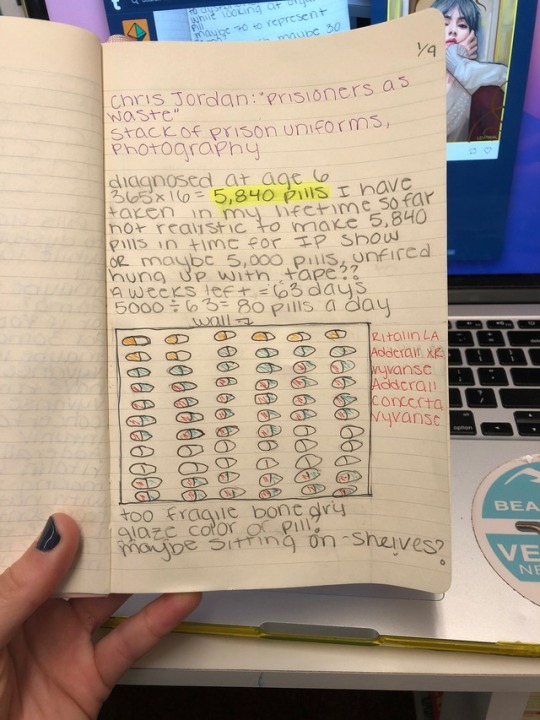 while looking at
maybe 70 to represent
maybe 30
1/9
Chris Jordan: "prisioners as
waste"
stack of prison uniforms,
photography
diagnosed at age 6
365x16 = 5,840 pills I have
taken in my lifetime so far
not realistic to make 5,840
pills in time for IP show
OR maybe 5,000 pills, unfired
hung up with tape??
9 weeks left = 63 days
5000 ÷ 63 = 80 pills a day
wall →
Ritalin LA
Adderall XR
vyvanse
Adderall
concerta
vyvanse
too fragile bone dry
glaze color of pill?
maybe sitting on shelves?
BEA
VE
NE
option